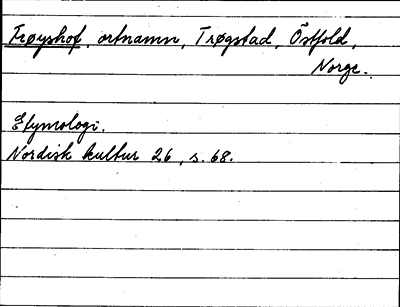 Frøyshof, ortnamn, Trøgstad, Östfold,
Norge.
Etymologi.
Nordisk kultur 26, s. 68.